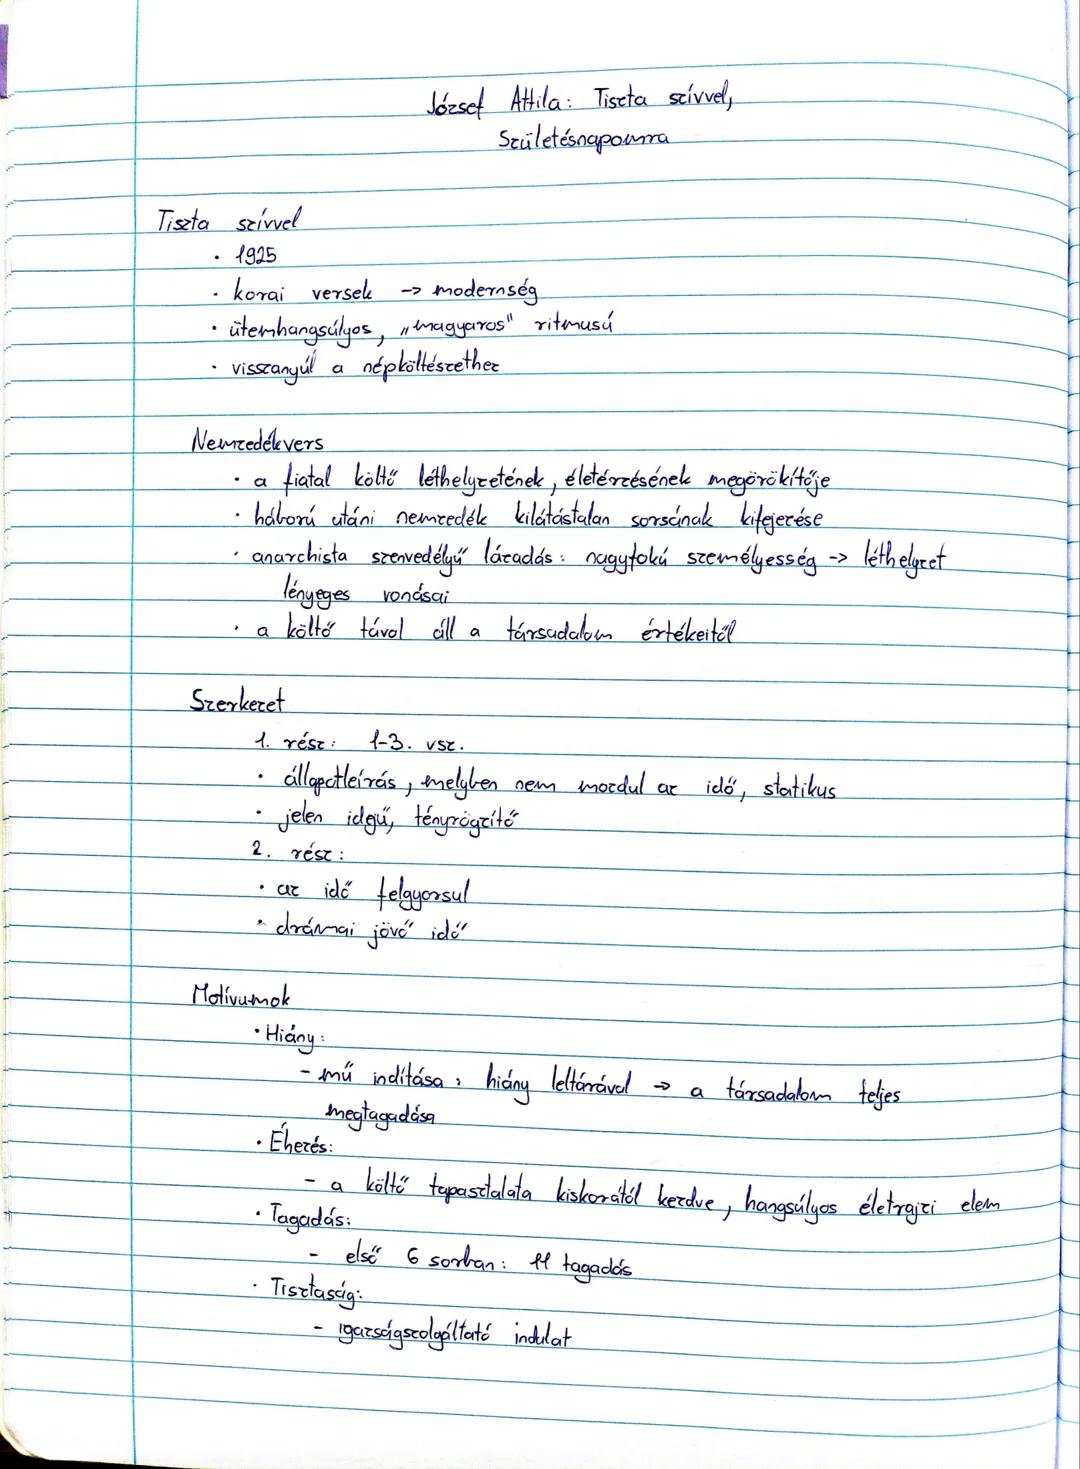 József Attila: Tiszta szívvel,
Születésnapomra
Tiszta szívvel
· 1925
· korai versek -> modernség
· ütemhangsúlyos, „magyaros" ritmusú
· visszanyúl a népköltészethez
Nemzedékvers
· a fiatal költő léthelyzetének, életérzésének megörökítője
· háború utáni nemzedék kilátástalan sorsának kifejezése
· anarchista szenvedélyű lázadás: nagyfokú személyesség -> léthelyzet
lényeges vonásai
· a költő távol áll a társadalom értékeitől
Szerkezet
1. rész: 1-3. vsz.
· állapotleírás, melyben nem mozdul az idő, statikus
· jelen idejű, tényrögzítő
2. rész:
· az idő felgyorsul
· drámai jövő idő
Motívumok
· Hiány:
- mű indítása: hiány leltárával -> a társadalom teljes
megtagadása
· Éhezés:
- a költő tapasztalata kiskorától kezdve, hangsúlyos életrajzi elem
· Tagadás:
- első 6 sorban: 11 tagadás
· Tisztaság:
- igazságszolgáltató indulat